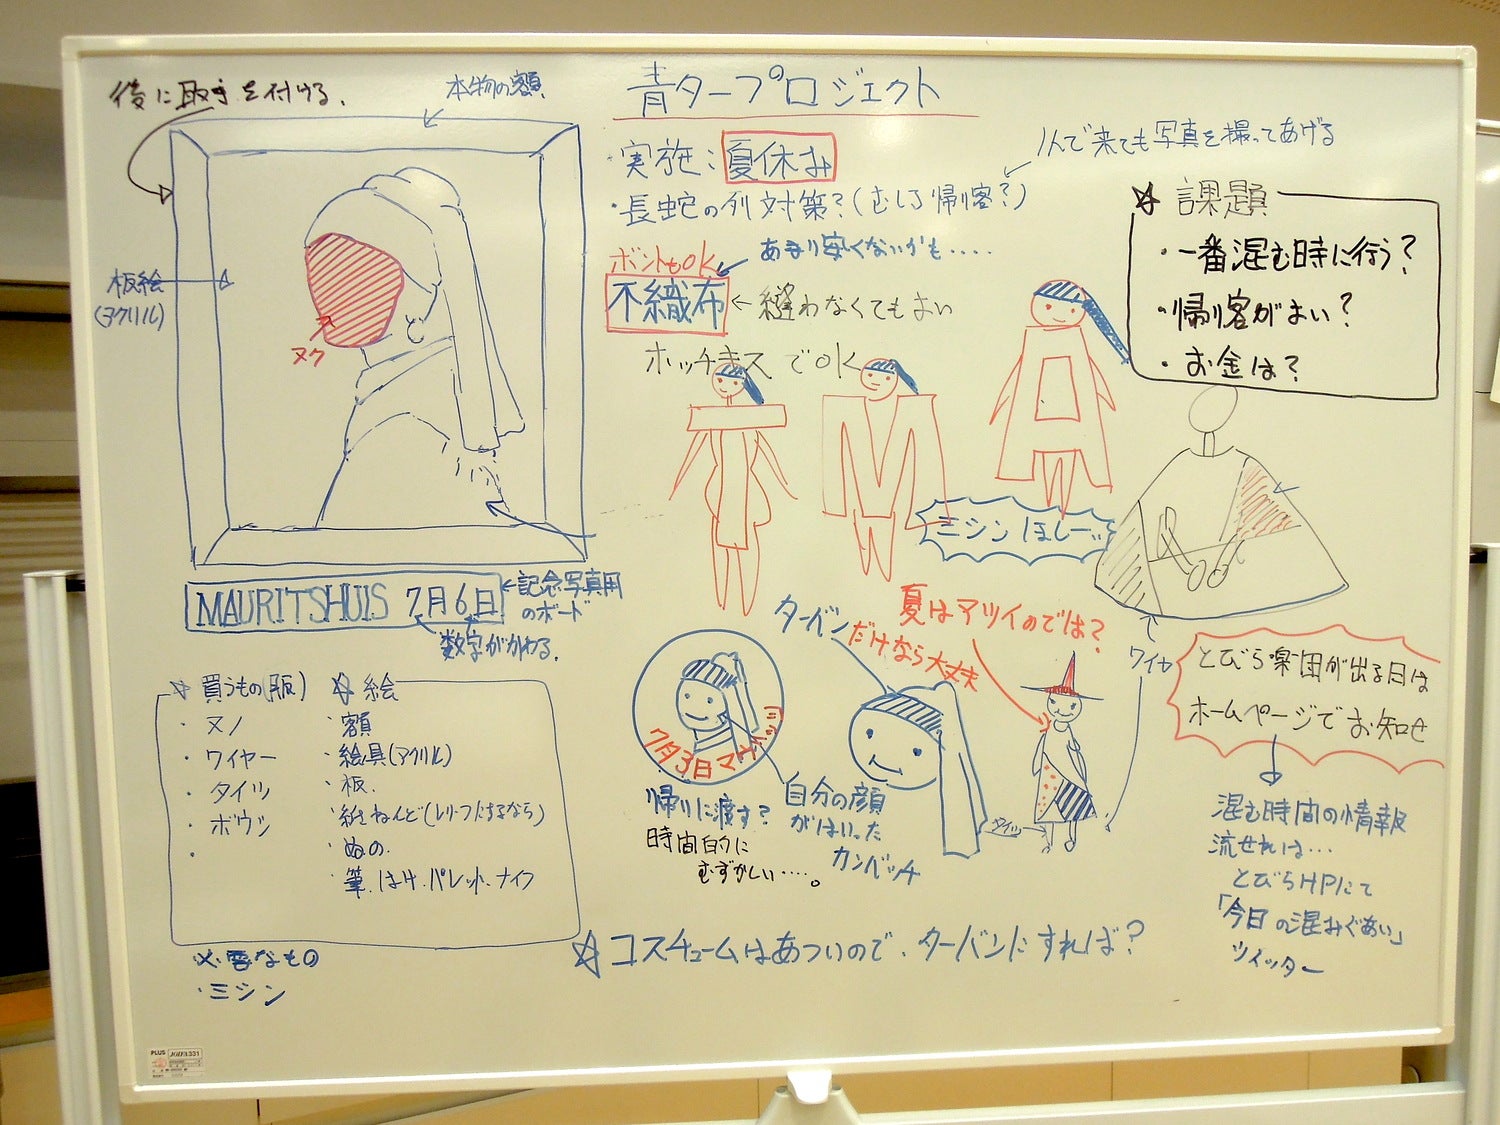 後に取手を付ける.
本物の額
板絵
(アクリル)
ヌク
MAURITSHUIS 7月6日
記念写真用
のボード
数字がかわる.
☆ 買うもの(服)
・ヌノ
・ワイヤー
・タイツ
・ボウシ
・
☆ 絵
・額
・絵具(アクリル)
・板.
・紙ねんど(レリーフにするなら)
・ぬの.
・筆.はけ.パレット.ナイフ
必要なもの
・ミシン
青タープロジェクト
・実施:夏休み
・長蛇の列対策?(むしろ帰り客?)
1人で来ても写真を撮ってあげる
ボンドもOK
あまり安くないかも....
不織布
←縫わなくてもよい
ホッチキスでOK
☆ 課題
・一番混む時に行う?
・帰り客がよい?
・お金は?
ミシンほしーッ
ワイヤ
夏はアツイのでは?
ターバンだけなら大丈夫
タイツ
7月3日マウリッツ
帰りに渡す?
時間的に
むずかしい....。
自分の顔
がはいった
カンバッチ
とびら楽団が出る日は
ホームページでお知らせ
混む時間の情報
流せれば…
とびらHPにて
「今日の混みぐあい」
ツイッター
☆ コスチュームはあついので、ターバンにすれば?
PLUS